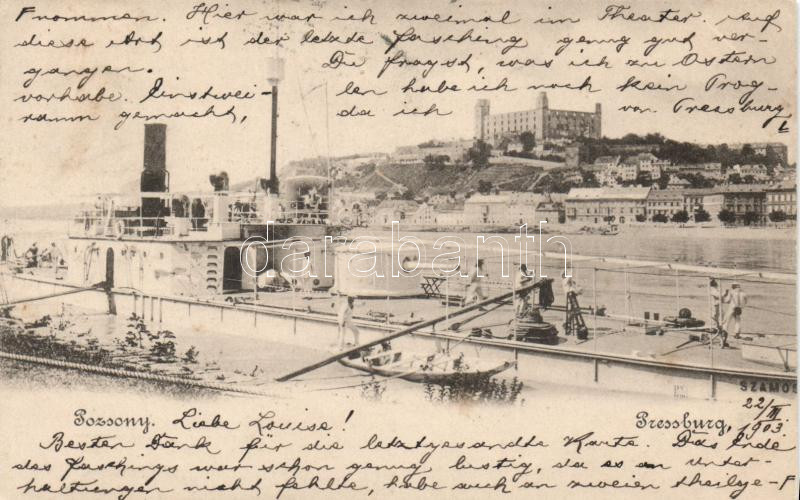 nommen. Hier war ich zweimal im Theater. Auf
diese Art ist der letzte Fasching genug gut ver-
gangen. Du fragst, was ich zu Ostern
vorhabe. Einstwei- len habe ich noch kein Prog-
ramm gemacht, da ich von Pressburg
darabanth.com
SZAMOS
Pozsony. Liebe Louise! Pressburg, 22/III 1903
Besten Dank für die letztgesandte Karte. Das Ende
des Faschings war schon genug lustig, da es an Unter-
haltungen nicht fehlte, habe auch an zweien theilge-